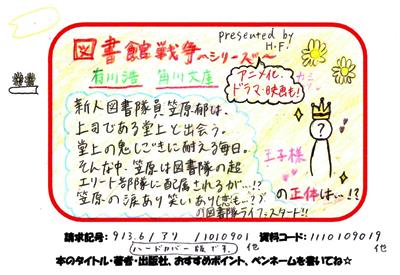 presented by
H.F.
図書館戦争
～シリーズ～
有川浩 角川文庫
アニメ化、
ドラマ・映画も!
新人図書隊員笠原郁は、
上司である堂上と出会う。
堂上の鬼しごきに耐える毎日。
そんな中、笠原は図書隊の超
エリート部隊に配属されるが…!?
笠原の涙あり笑いあり(恋も!?)
の図書隊ライフ、スタート!!
?
王子様
の正体は…!?
請求記号: 913.6/アリ /1010901 他 資料コード: 1110109019 他
(ハードカバー版です)
本のタイトル・著者・出版社、おすすめポイント、ペンネームを書いてね☆